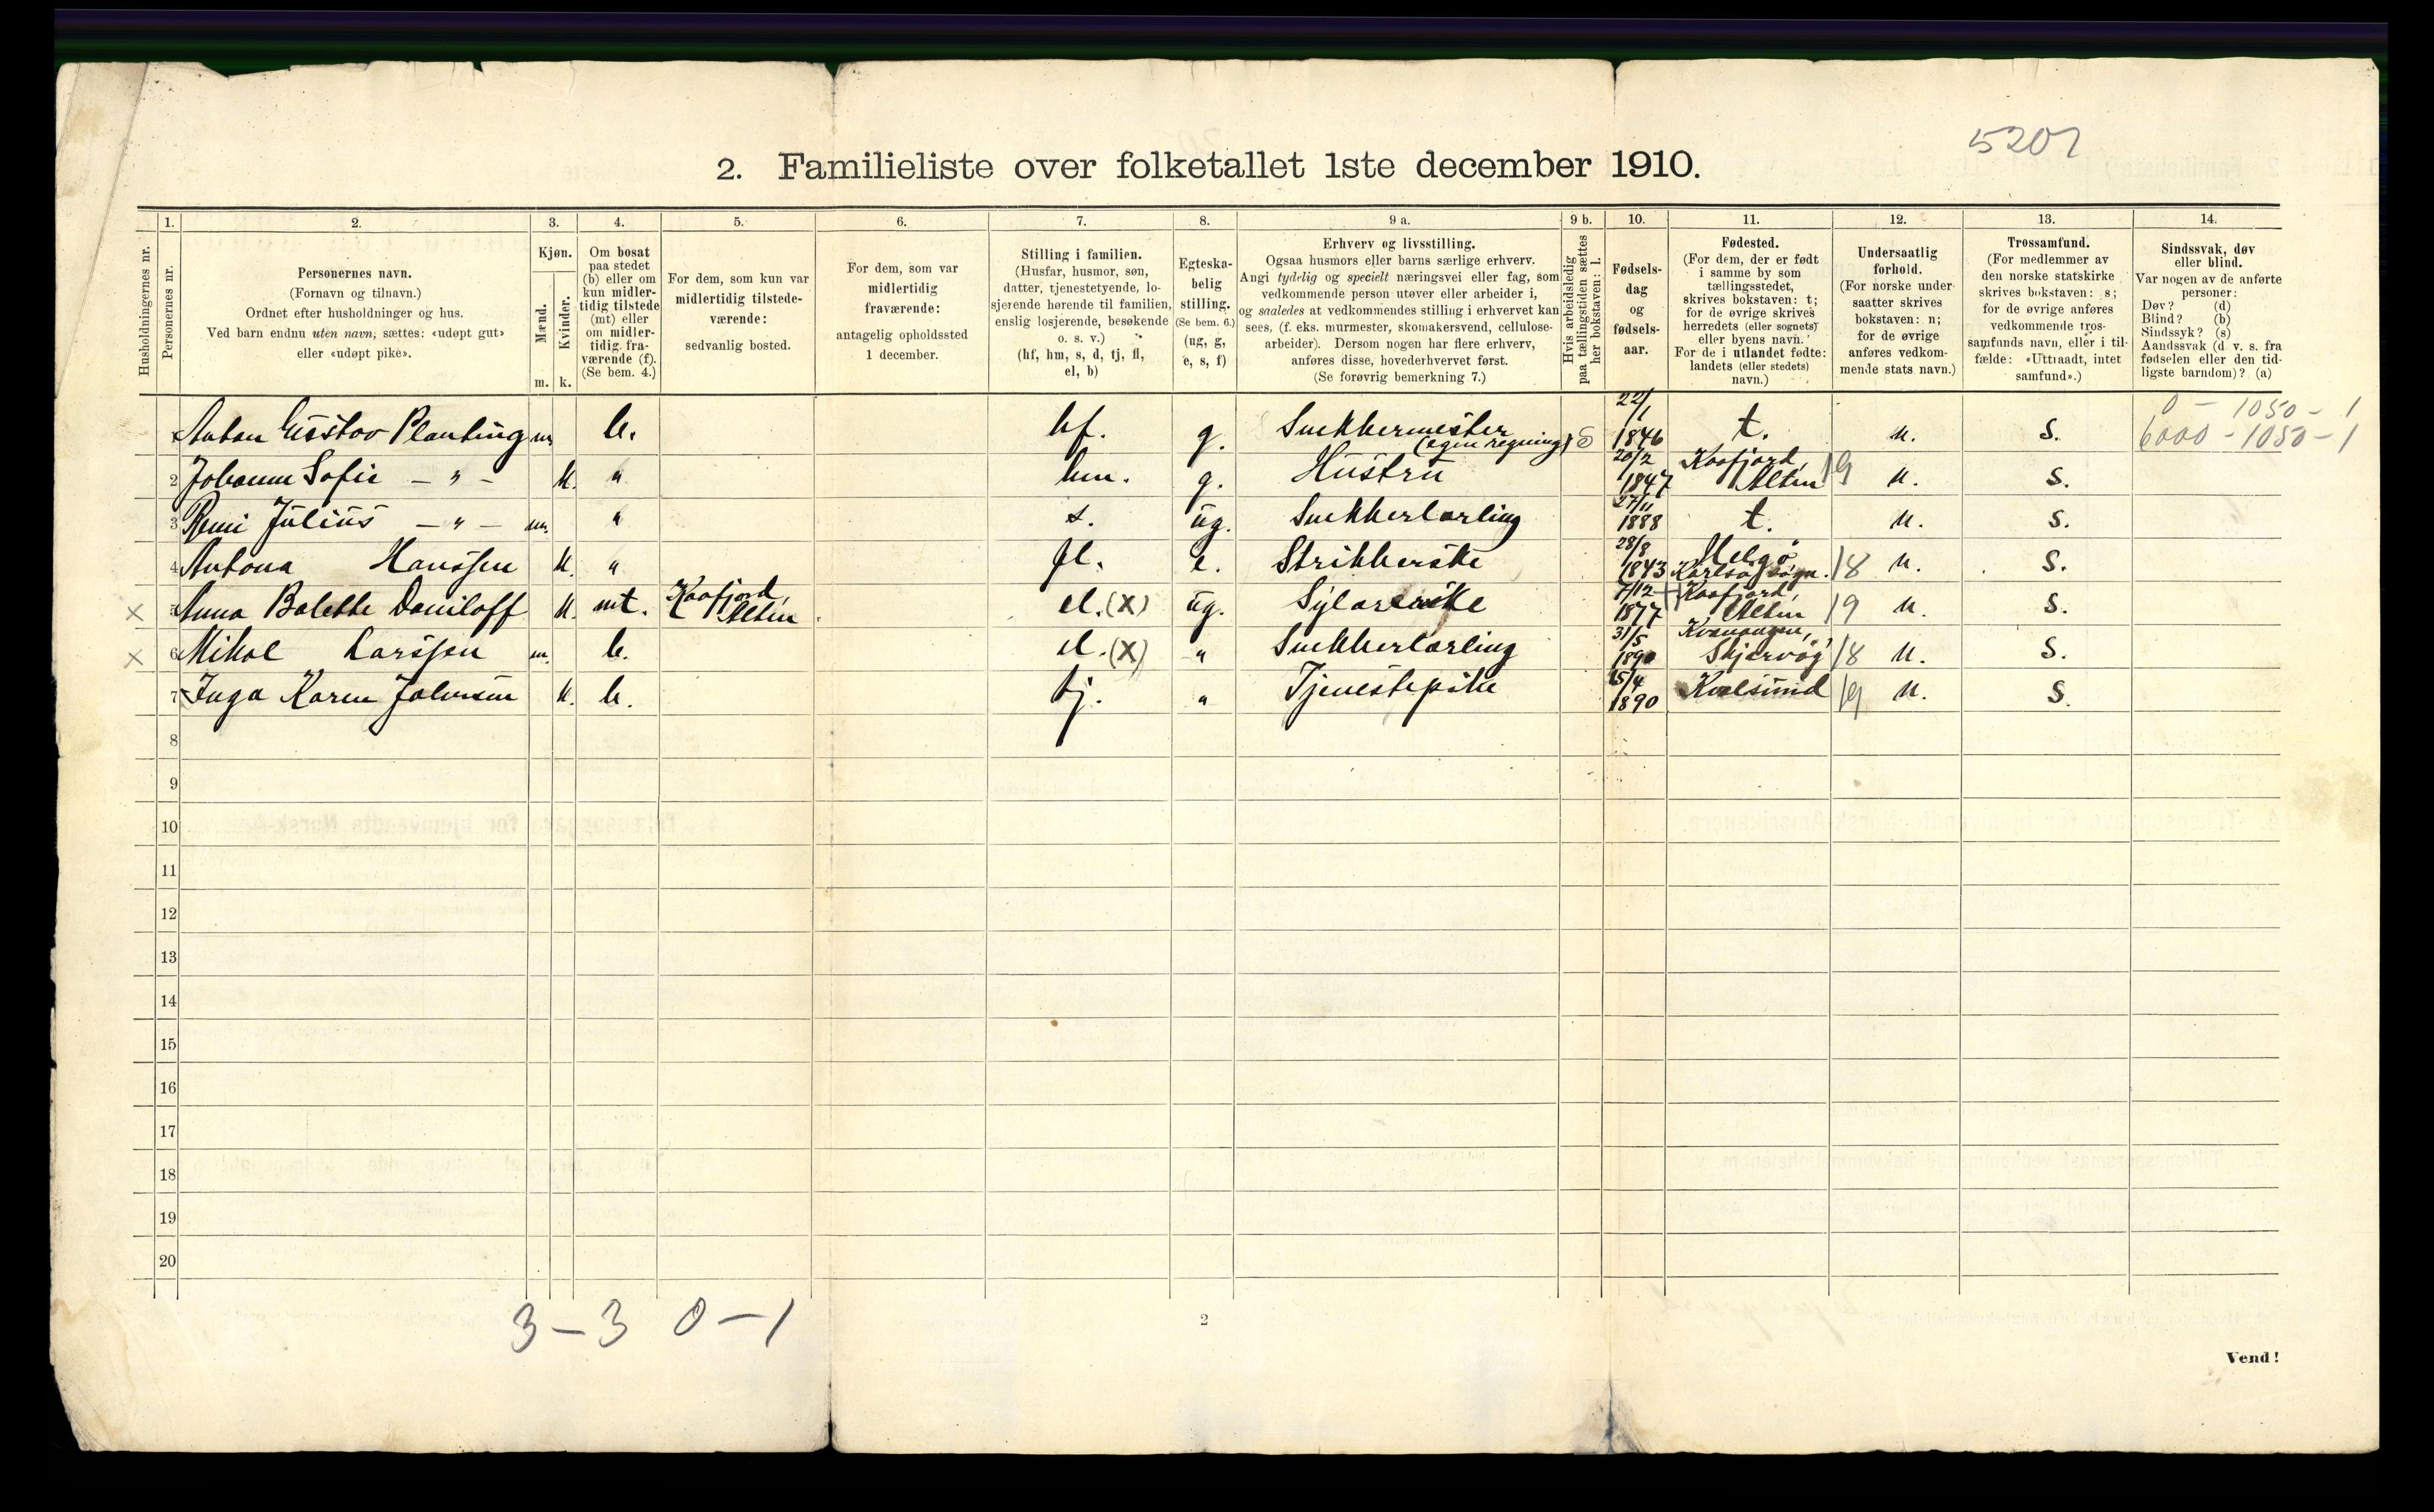 5207
2. Familieliste over folketallet 1ste december 1910.
Husholdningernes nr.
1.
Personernes nr.
2.
Personernes navn.
(Fornavn og tilnavn.)
Ordnet efter husholdninger og hus.
Ved barn endnu uten navn, sættes: «udøpt gut»
eller «udøpt pike».
3.
Kjøn.
Mænd.
Kvinder.
m. k.
4.
Om bosat
paa stedet
(b) eller om
kun midler-
tidig tilstede
(mt) eller
om midler-
tidig fra-
værende (f).
(Se bem. 4.)
5.
For dem, som kun var
midlertidig tilstede-
værende:
sedvanlig bosted.
6.
For dem, som var
midlertidig
fraværende:
antagelig opholdssted
1 december.
7.
Stilling i familien.
(Husfar, husmor, søn,
datter, tjenestetyende, lo-
sjerende hørende til familien,
enslig losjerende, besøkende
o. s. v.)
(hf, hm, s, d, tj, fl,
el, b)
8.
Egteska-
belig
stilling.
(Se bem. 6.)
(ug, g,
e, s, f)
9 a.
Erhverv og livsstilling.
Ogsaa husmors eller barns særlige erhverv.
Angi tydelig og specielt næringsvei eller fag, som
vedkommende person utøver eller arbeider i,
og saaledes at vedkommendes stilling i erhvervet kan
sees, (f. eks. murmester, skomakersvend, cellulose-
arbeider). Dersom nogen har flere erhverv,
anføres disse, hovederhvervet først.
(Se forøvrig bemerkning 7.)
9 b.
Hvis arbeidsledig
paa tællingstiden sættes
her bokstaven: l.
10.
Fødsels-
dag
og
fødsels-
aar.
11.
Fødested.
(For dem, der er født
i samme by som
tællingsstedet,
skrives bokstaven: t;
for de øvrige skrives
herredets (eller sognets)
eller byens navn.
For de i utlandet fødte:
landets (eller stedets)
navn.)
12.
Undersaatlig
forhold.
(For norske under-
saatter skrives
bokstaven: n;
for de øvrige
anføres vedkom-
mende stats navn.)
13.
Trossamfund.
(For medlemmer av
den norske statskirke
skrives bokstaven: s;
for de øvrige anføres
vedkommende tros-
samfunds navn, eller i til-
fælde: «Uttraadt, intet
samfund».)
14.
Sindssvak, døv
eller blind.
Var nogen av de anførte
personer:
Døv? (d)
Blind? (b)
Sindssyk? (s)
Aandssvak (d. v. s. fra
fødselen eller den tid-
ligste barndom)? (a)
0 - 1050 - 1
Anton Gustav Planting m. b. hf. g. Snekkermester (egen regning) 22/1 1846 t. n. s. 6000 - 1050 - 1
2 Johanne Sofie - " - k. " hm. g. Hustru 20/2 1847 Kaafjord, Alten 19 n. s.
3 Remi Julius - " - m. " s. ug. Snekkerlærling 27/11 1888 t. n. s.
4 Antona Hanssen k. " fl. e. Strikkerske 28/8 1843 Helgø Karlsø sogn. 18 n. s.
x Anna Balette Daniloff k. mt. Kaafjord, Alten el. (x) ug. Sylærerske 7/12 1877 Kaafjord, Alten 19 n. s.
x 6 Mikal Larssen m. b. el. (x) " Snekkerlærling 31/5 1890 Kvænangen, Skjervøy 18 n. s.
7 Inga Karen Johnsen k. b. tj. " Tjenestepike 15/4 1890 Kvalsund 19 n. s.
8
9
10
11
12
13
14
15
16
17
18
19
20
3 - 3 0 - 1
2
Vend!